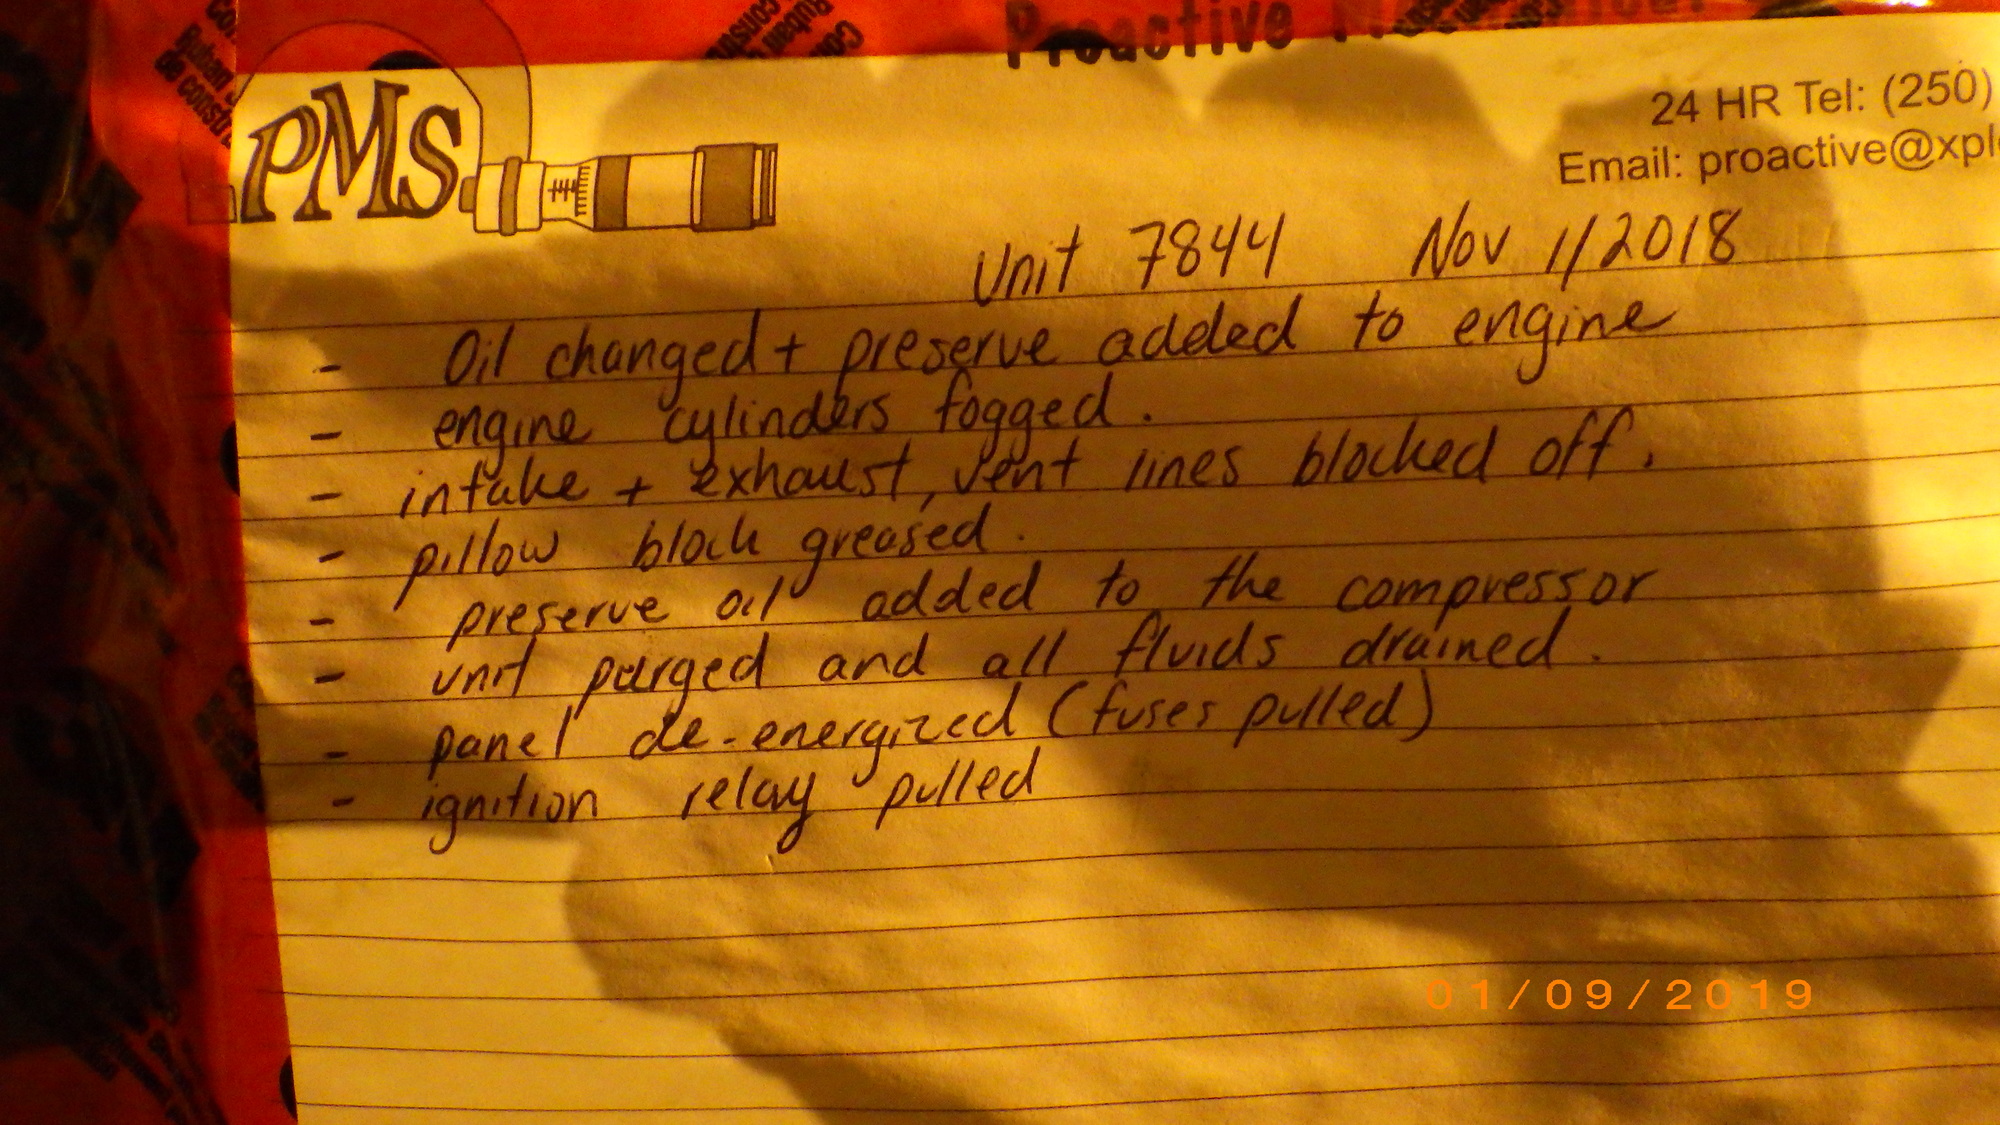 Proactive
24 HR Tel: (250)
PMS
Email: proactive@xpl
Unit 7844 Nov 1/2018
- Oil changed + preserve added to engine
- engine cylinders fogged.
- intake + exhaust, vent lines blocked off.
- pillow block greased.
- preserve oil added to the compressor
- unit purged and all fluids drained.
- panel de-energized (fuses pulled)
- ignition relay pulled
01/09/2019